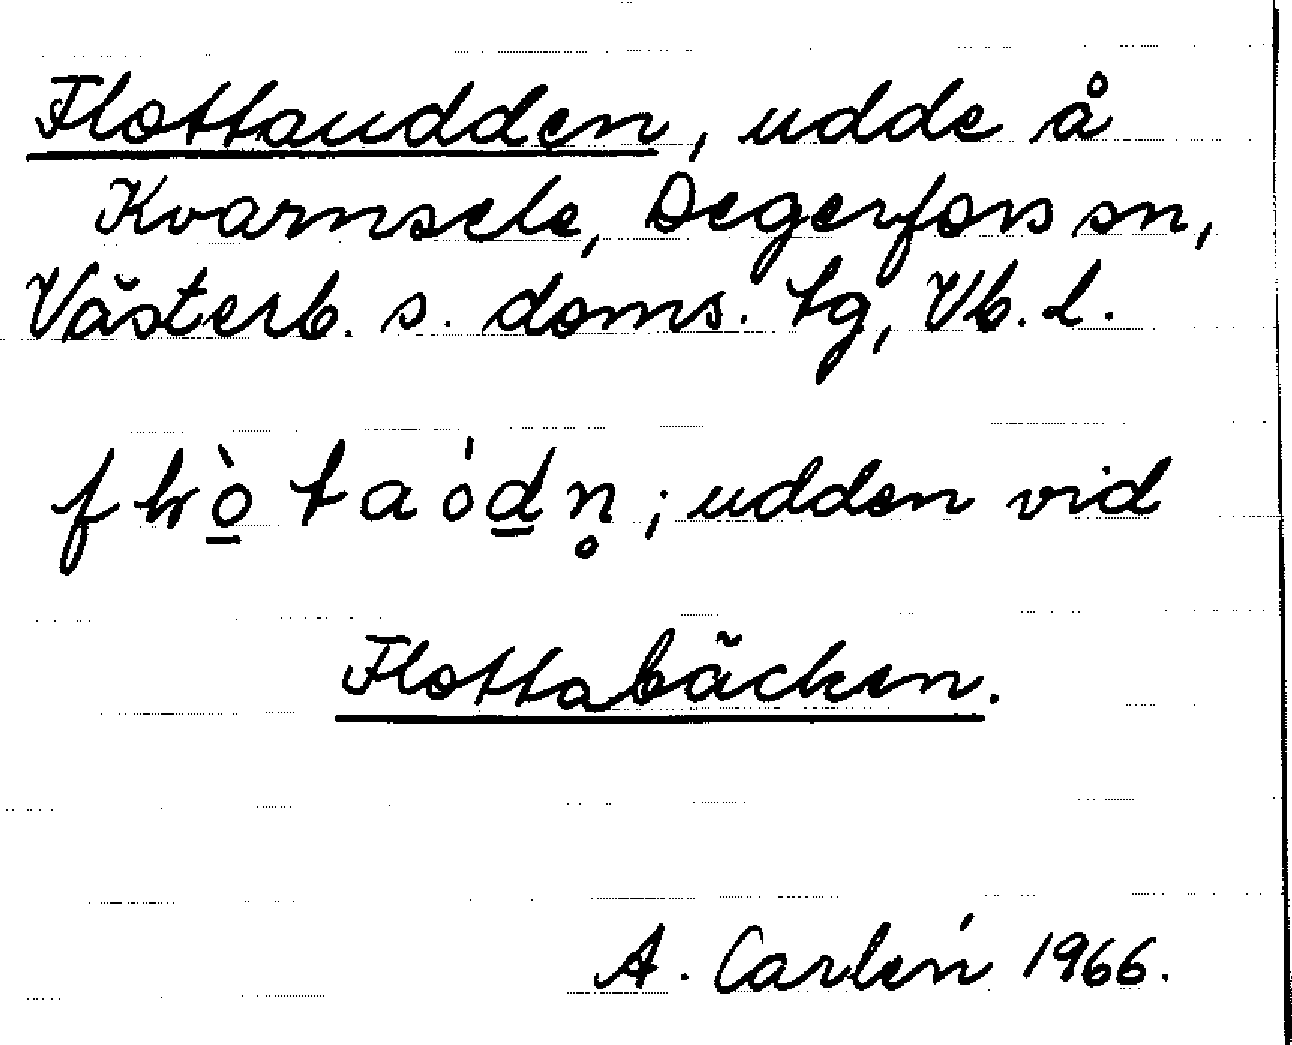 Flottaudden, udde å
Kvarnsele, Degerfors sn,
Västerb. s. doms. tg, Vb. l.
udden vid
Flottabäcken.
A. Carlén 1966.